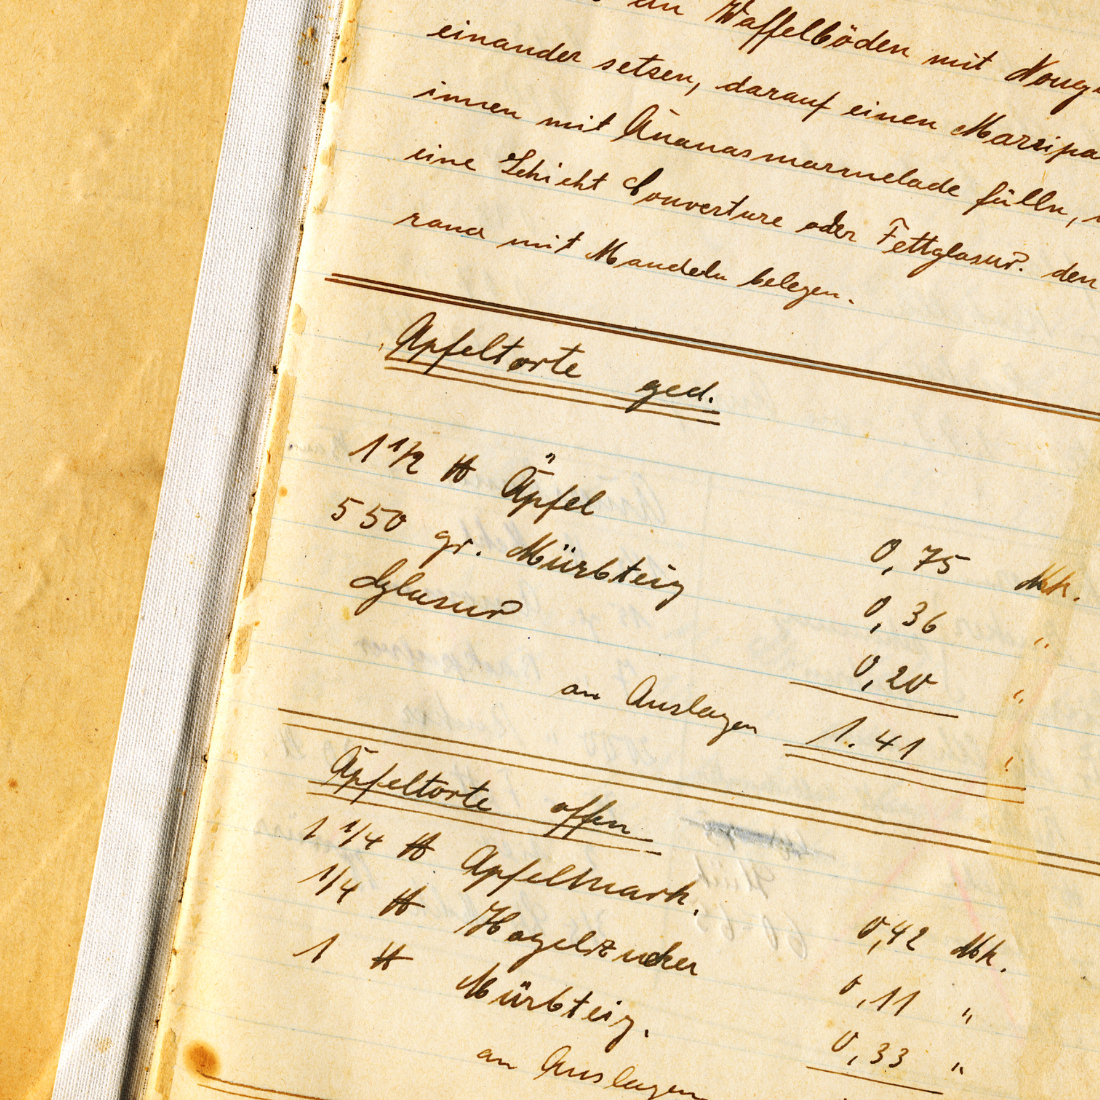 Waffelböden mit Noug
einander setzen, darauf einen Marzipa
innen mit Ananasmarmelade fülln,
eine Schicht Couverture oder Fettglasur. den
rand mit Mandeln belegen.
Apfeltorte ged.
1 1/2 ℔ Äpfel 0,75 Mk.
550 gr. Mürbteig 0,36 "
Glasur 0,20 "
an Auslagen 1.41 "
Apfeltorte offen
1 1/4 ℔ Apfelmark. 0,42 Mk.
1/4 ℔ Hagelzucker 0,11 "
1 ℔ Mürbteig. 0,33 "
an Auslagen